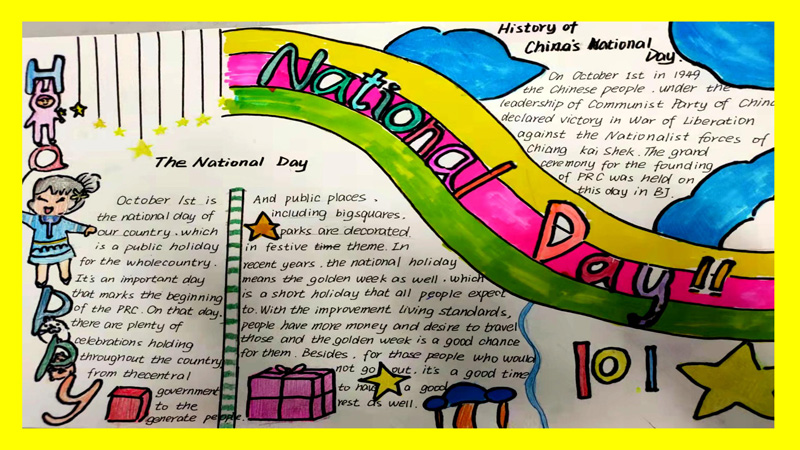 Happy
National Day !!
History of
China's National
Day.
On October 1st in 1949
the Chinese people . under the
leadership of Communist Party of China
declared victory in War of Liberation
against the Nationalist forces of
Chiang kai Shek. The grand
ceremony for the founding
of PRC was held on
this day in BJ.
The National Day
October 1st is
the national day of
our country . which
is a public holiday
for the wholecountry.
It's an important day
that marks the beginning
of the PRC. On that day.
there are plenty of
celebrations holding
throughout the country
from thecentral
government
to the
generate people.
And public places .
including bigsquares.
parks are decorated.
in festive time theme. In
recent years . the national holiday
means the golden week as well . which
is a short holiday that all people expect
to. With the improvement living standards,
people have more money and desire to travel
those and the golden week is a good chance
for them. Besides . for those people who would
not go out. it's a good time
to have a good
rest as well.
101